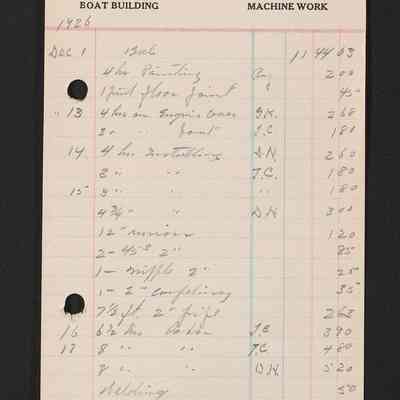 BOAT BUILDING MACHINE WORK
1926
Dec 1 Bal 1144 03
4 hrs Painting 2 00
1 pint floor paint 45
" 13 4 hrs on Engine Cover D.K. 2 60
3 " " Paint T.C. 1 80
14 4 hrs Installing D.K. 2 60
3 " " T.C. 1 80
15 3 " " " 1 80
4 3/4 " " D.K. 3 00
12" 1 20
2 - 45° 2" 85
1 - nipple 2" 25
1 - 2" coupling 35
7 1/2 ft. 2" pipe 2 63
16 6 1/2 hrs T.C. 3 90
17 8 " " T.C. 4 80
8 " " D.K. 5 20
Welding 50